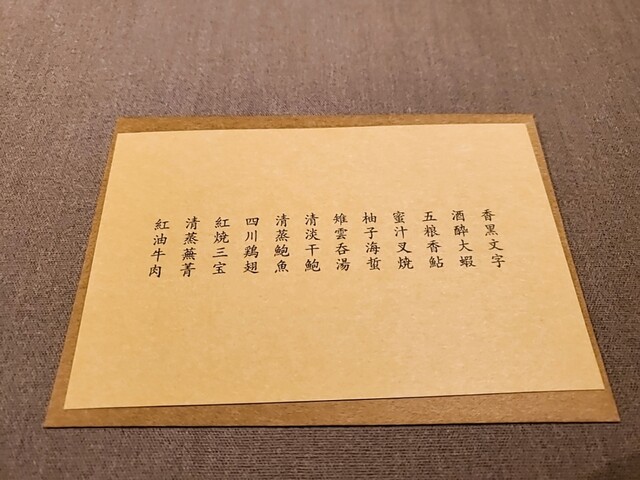 香黒文字
酒酔大蝦
五粮香鮎
蜜汁叉焼
柚子海蜇
雉雲呑湯
清淡干鮑
清蒸鮑魚
四川鶏翅
紅焼三宝
清蒸蕪菁
紅油牛肉